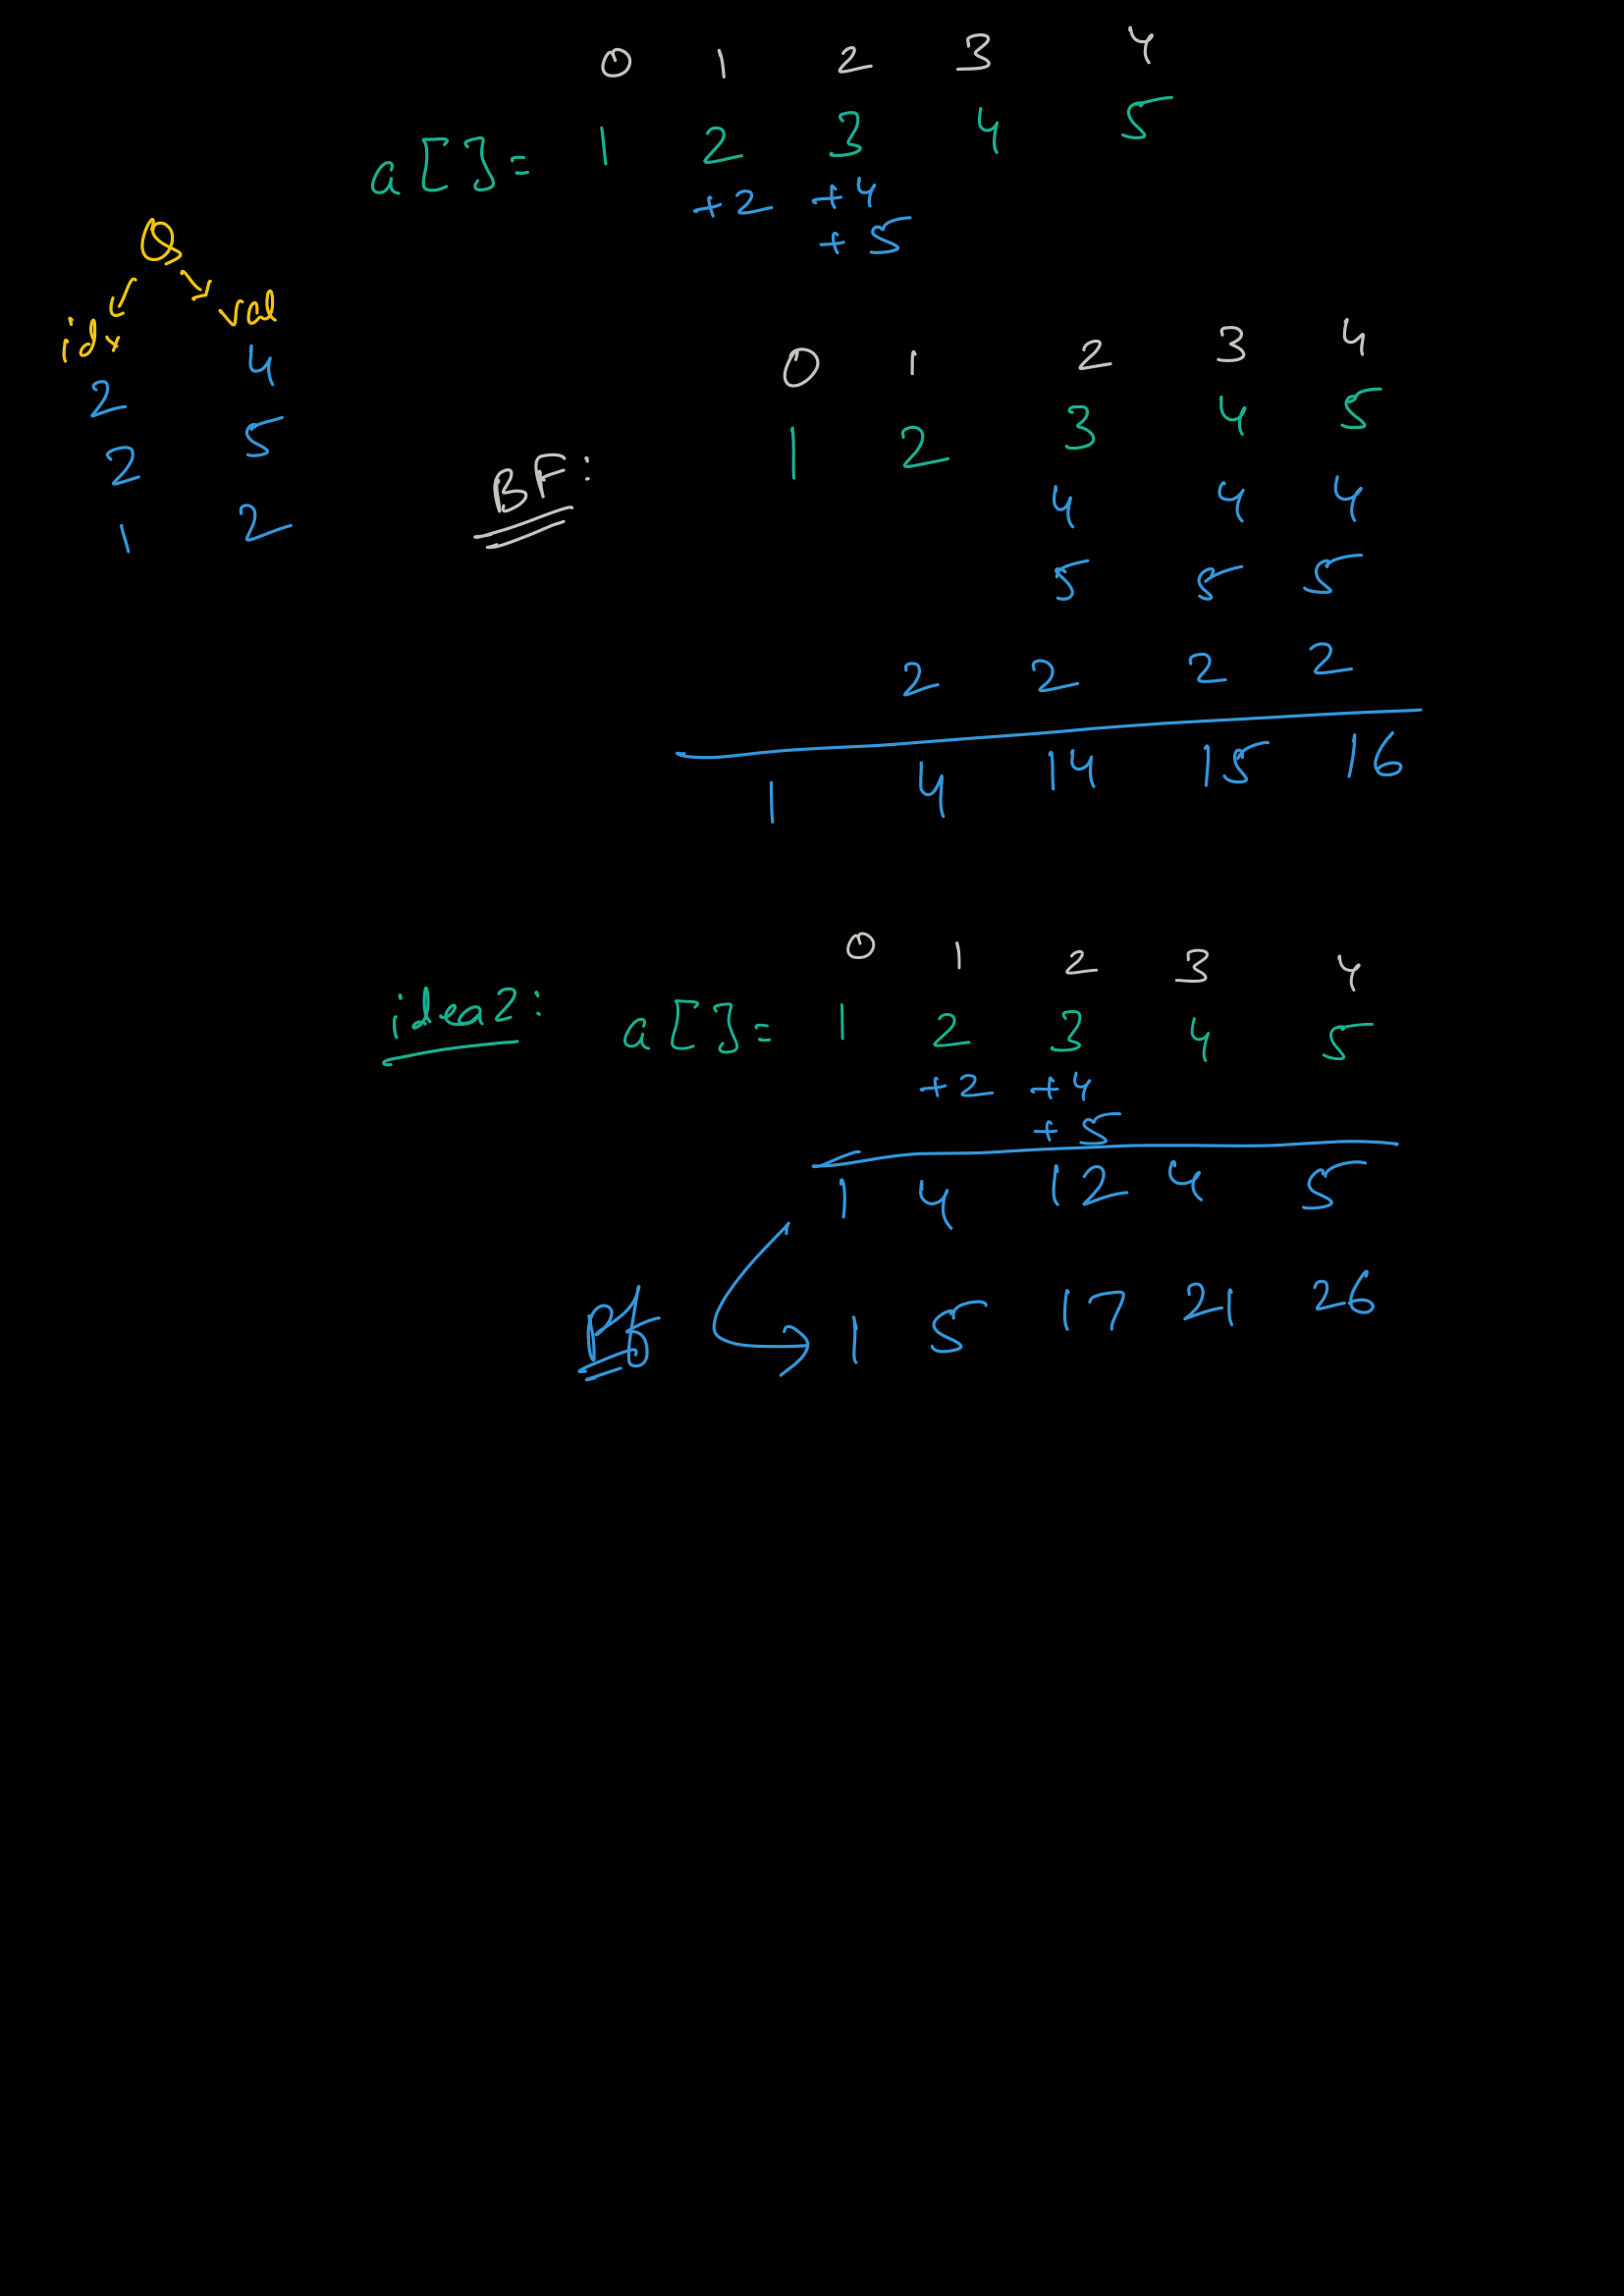 0 1 2 3 4
a[]= 1 2 3 4 5
+2 +4
+5
Q
idx val
2 4
2 5
1 2
0 1 2 3 4
BF: 1 2 3 4 5
4 4 4
5 5 5
2 2 2 2
1 4 14 15 16
0 1 2 3 4
idea2: a[]= 1 2 3 4 5
+2 +4
+5
1 4 12 4 5
Pf 1 5 17 21 26